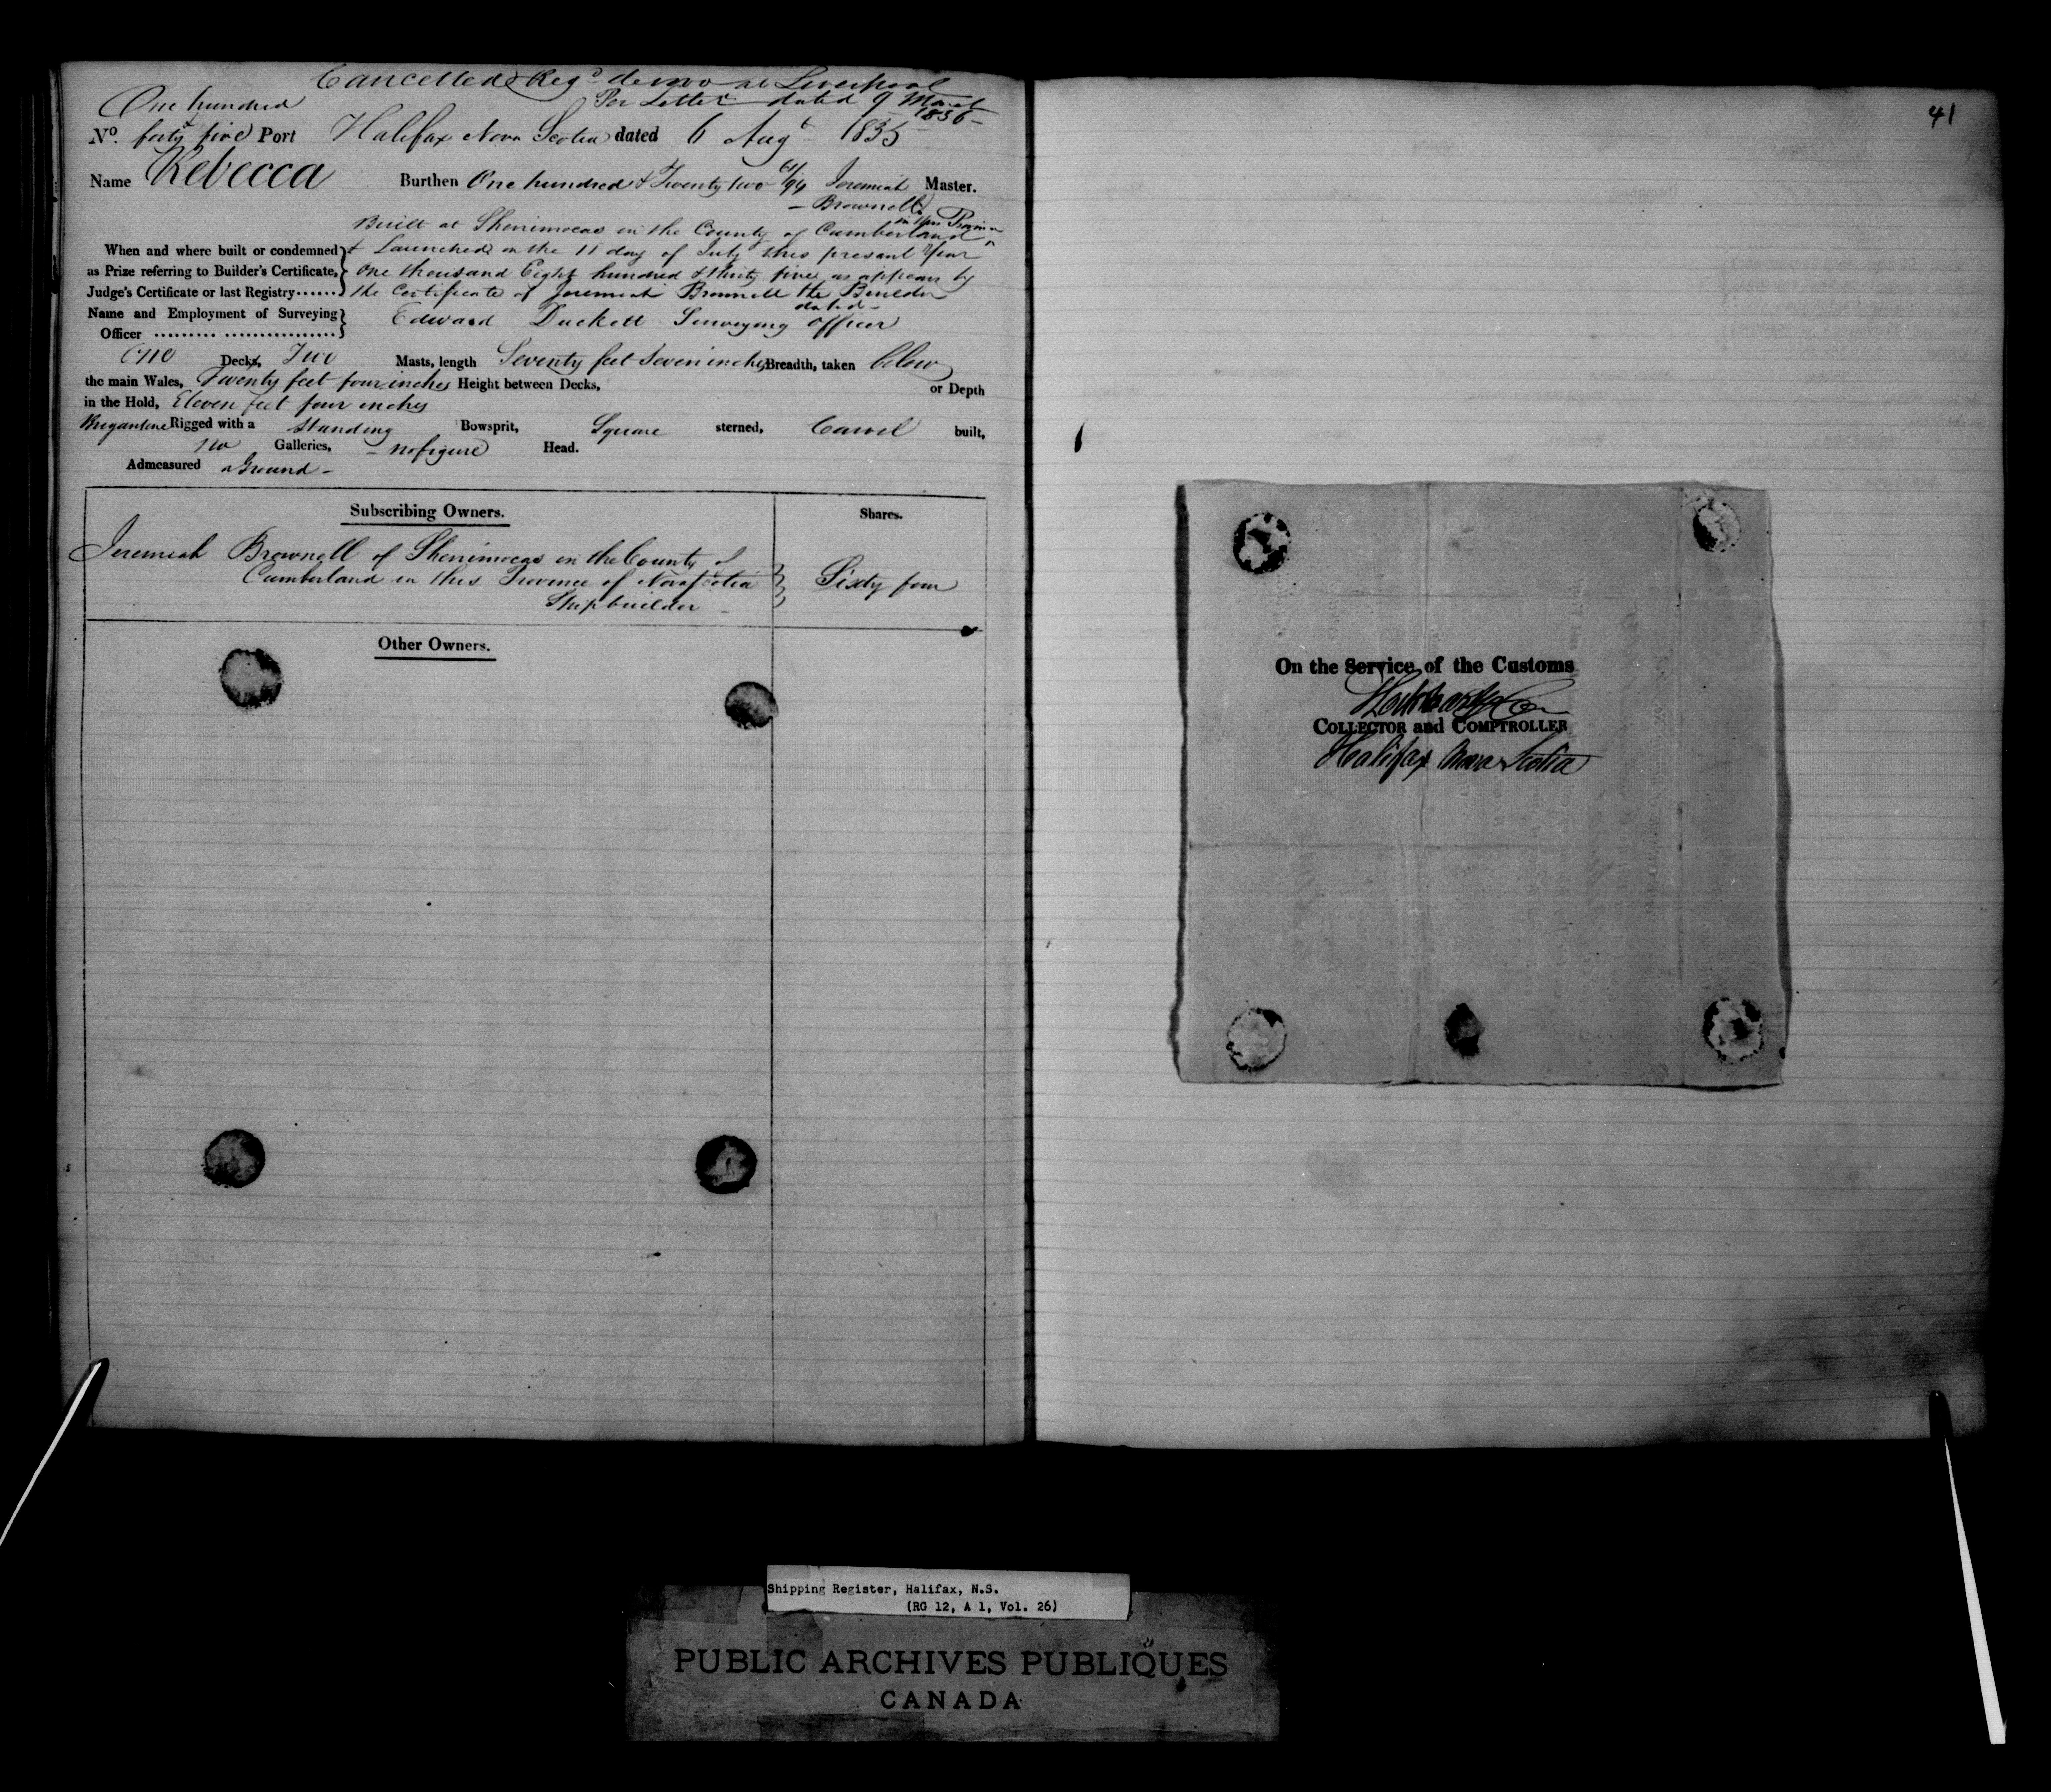 Cancelled & Regd de novo at Liverpool
Per Letter dated 9 March
1836
One hundred &
No. forty five Port Halifax Nova Scotia dated 6 Augt 1835
Name Rebecca Burthen One hundred & Twenty two 61/94 Jeremiah Master.
Brownell
Built at Shenimocas in the County of Cumberland in this Province
When and where built or condemned & Launched on the 11 day of July this present Year
as Prize referring to Builder's Certificate, One thousand Eight hundred & thirty five as appears by
Judge's Certificate or last Registry...... the Certificate of Jeremiah Brownell the Builder
dated
Name and Employment of Surveying
Officer .......... ................ Edward Duckett Surveying Officer
One Decks, Two Masts, length Seventy feet Seven inches Breadth, taken below
the main Wales, Twenty feet four inches Height between Decks, or Depth
in the Hold, Eleven feet four inches
Brigantine Rigged with a Standing Bowsprit, Square sterned, Carvel built,
no Galleries, no figure Head.
Admeasured aGround
Subscribing Owners. Shares.
Jeremiah Brownell of Shenimocas in the County of
Cumberland in this Province of Nova Scotia Sixty four
Shipbuilder
Other Owners.
41
On the Service of the Customs
COLLECTOR and COMPTROLLER
Halifax Nova Scotia
Shipping Register, Halifax, N.S.
(RG 12, A 1, Vol. 26)
PUBLIC ARCHIVES PUBLIQUES
CANADA